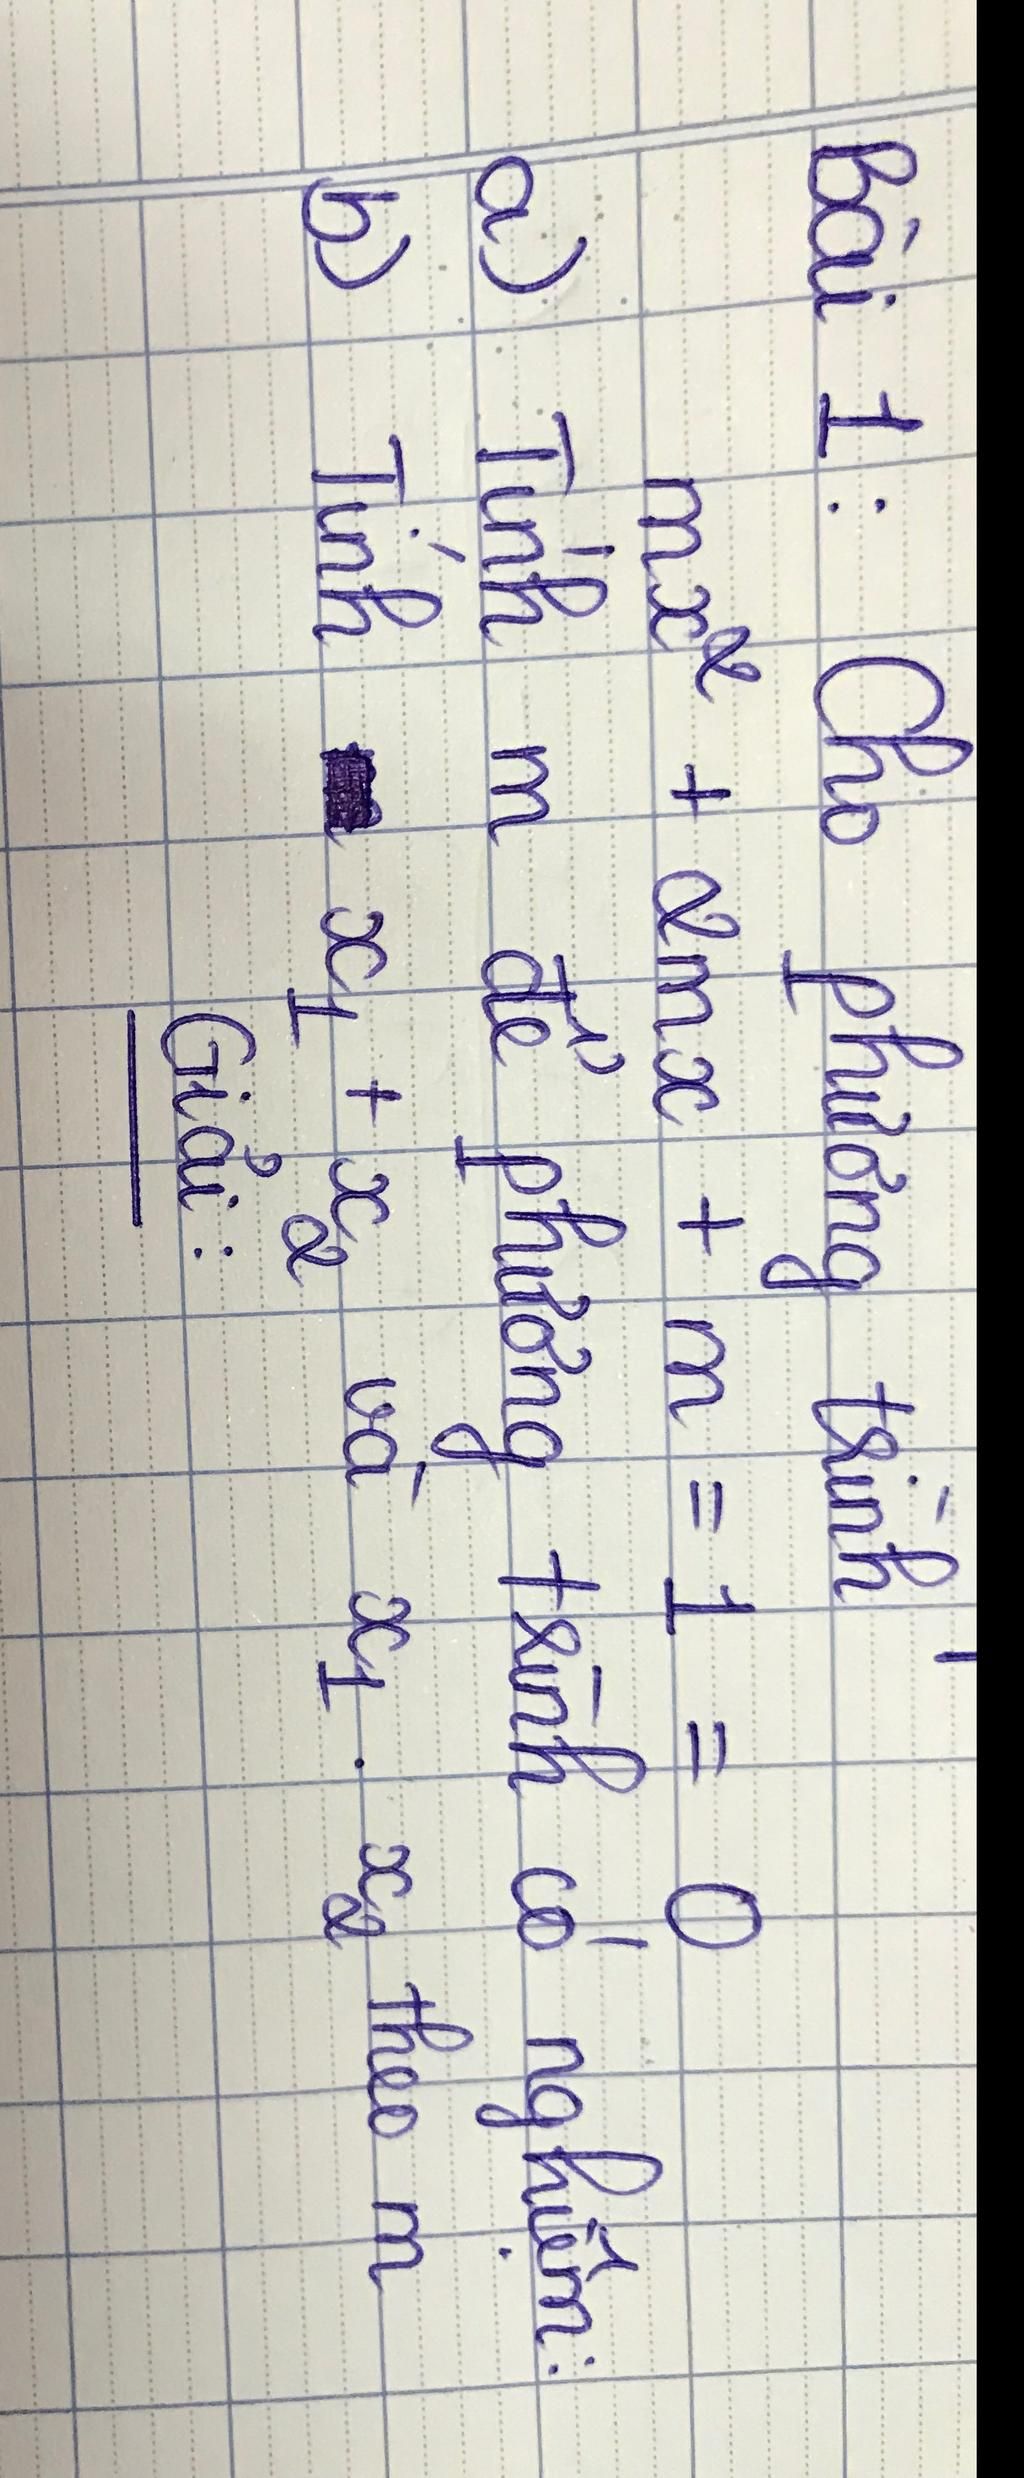 Bài 1: Cho phương trình
mx² + 2mx + m = 1 = 0
a) Tính m để phương trình có nghiệm:
b) Tính x₁ + x₂ và x₁ . x₂ theo m
Giải: